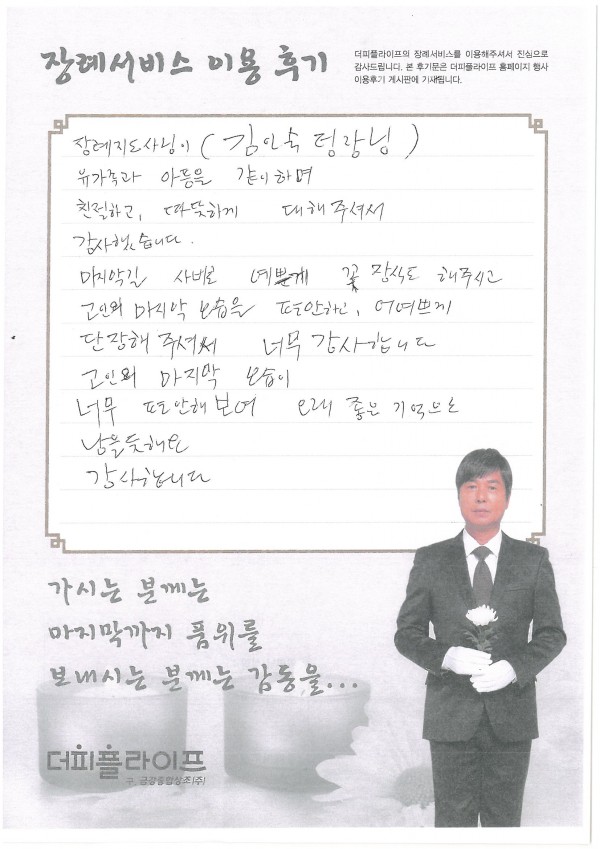 장례서비스 이용 후기
더피플라이프의 장례서비스를 이용해주셔서 진심으로
감사드립니다. 본 후기문은 더피플라이프 홈페이지 행사
이용후기 게시판에 기재됩니다.
장례지도사님이 ( 김인숙 팀장님 )
유가족과 아픔을 같이하며
친절하고, 따뜻하게 대해주셔서
감사했습니다.
마지막길 사비로 예쁘게 꽃 장식도 해주시고
고인의 마지막 모습을 편안하고, 어여쁘게
단장해 주셔서 너무 감사합니다
고인의 마지막 모습이
너무 편안해 보여 오래 좋은 기억으로
남을듯해요
감사합니다
가시는 분께는
마지막까지 품위를
보내시는 분께는 감동을...
더피플라이프
구. 금강종합상조(주)